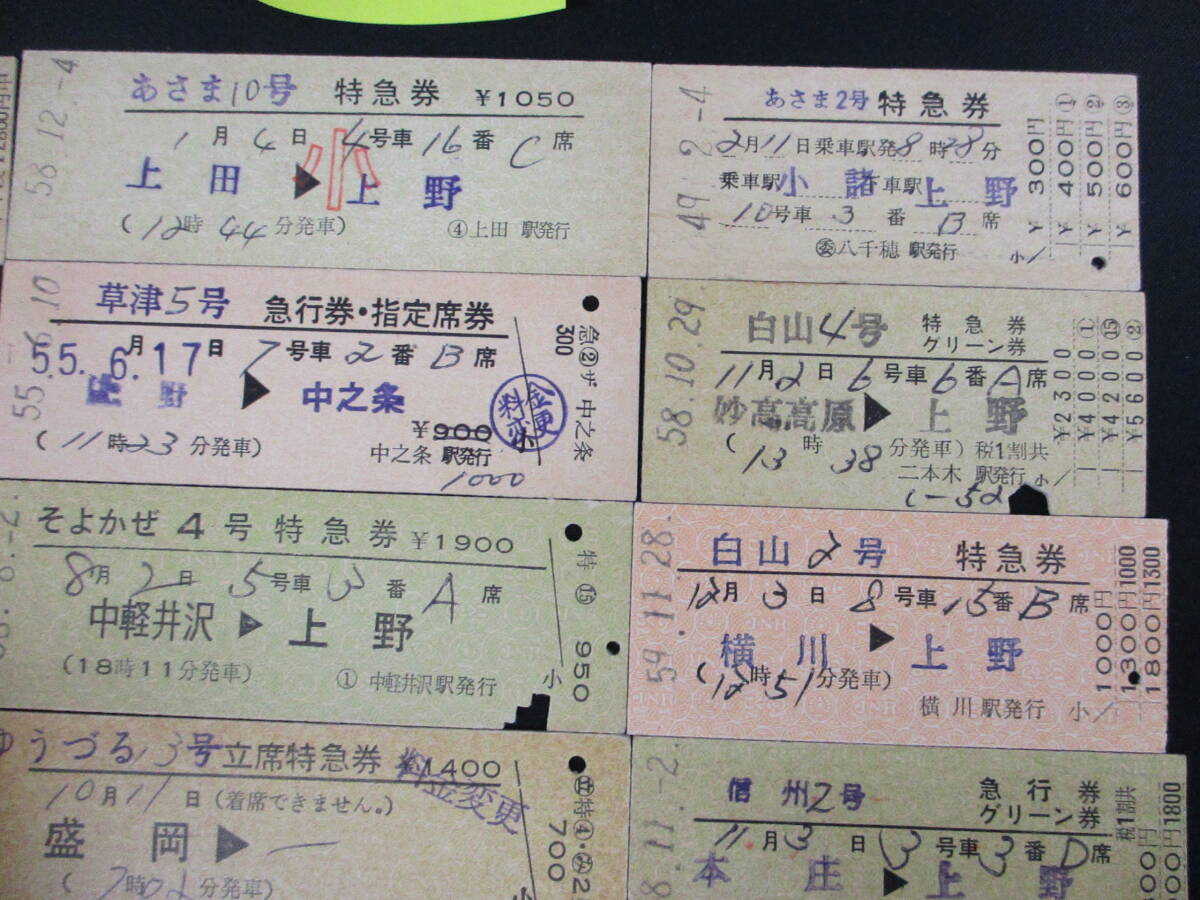 58.12.-4
あさま10号 特急券 ¥1050
1月4日 4号車16番C席
上田▶上野
(12時44分発車) ④上田駅発行
49.2.-4
あさま2号 特急券
2月11日乗車駅発8時28分
乗車駅小諸下車駅上野
10号車3番B席
㊟八千穂駅発行 小
¥300円
¥400円①
¥500円②
¥600円③
55.-6.10
草津5号 急行券・指定席券
55.6月17日 7号車2番B席
上野▶中之条
(11時23分発車) ¥900
中之条駅発行
1000
料金変更
小
急②ザ中之条
300
58.10.29.
白山4号 特急券
グリーン券
11月2日6号車6番A席
妙高高原▶上野
(13時38分発車)税1割共
二本木駅発行 小
(-52
¥2300
¥4000①
¥4200⑮
¥5600②
そよかぜ4号 特急券 ¥1900
8月2日 5号車3番A席
中軽井沢▶上野
(18時11分発車) ①中軽井沢駅発行
小
特⑮
950
59.11.28.
白山2号 特急券
12月3日8号車15番B席
横川▶上野
(12時51分発車)
横川駅発行 小
1000円
1300円1000
1800円1300
ゆうづる13号立席特急券 ¥1400
料金変更
10月11日(着席できません。)
盛岡▶
(7時02分発車)
小
700
8.11.-2
信州2号 急行券
グリーン券
11月3日3号車3番D席
本庄▶上野
税1割共
1800